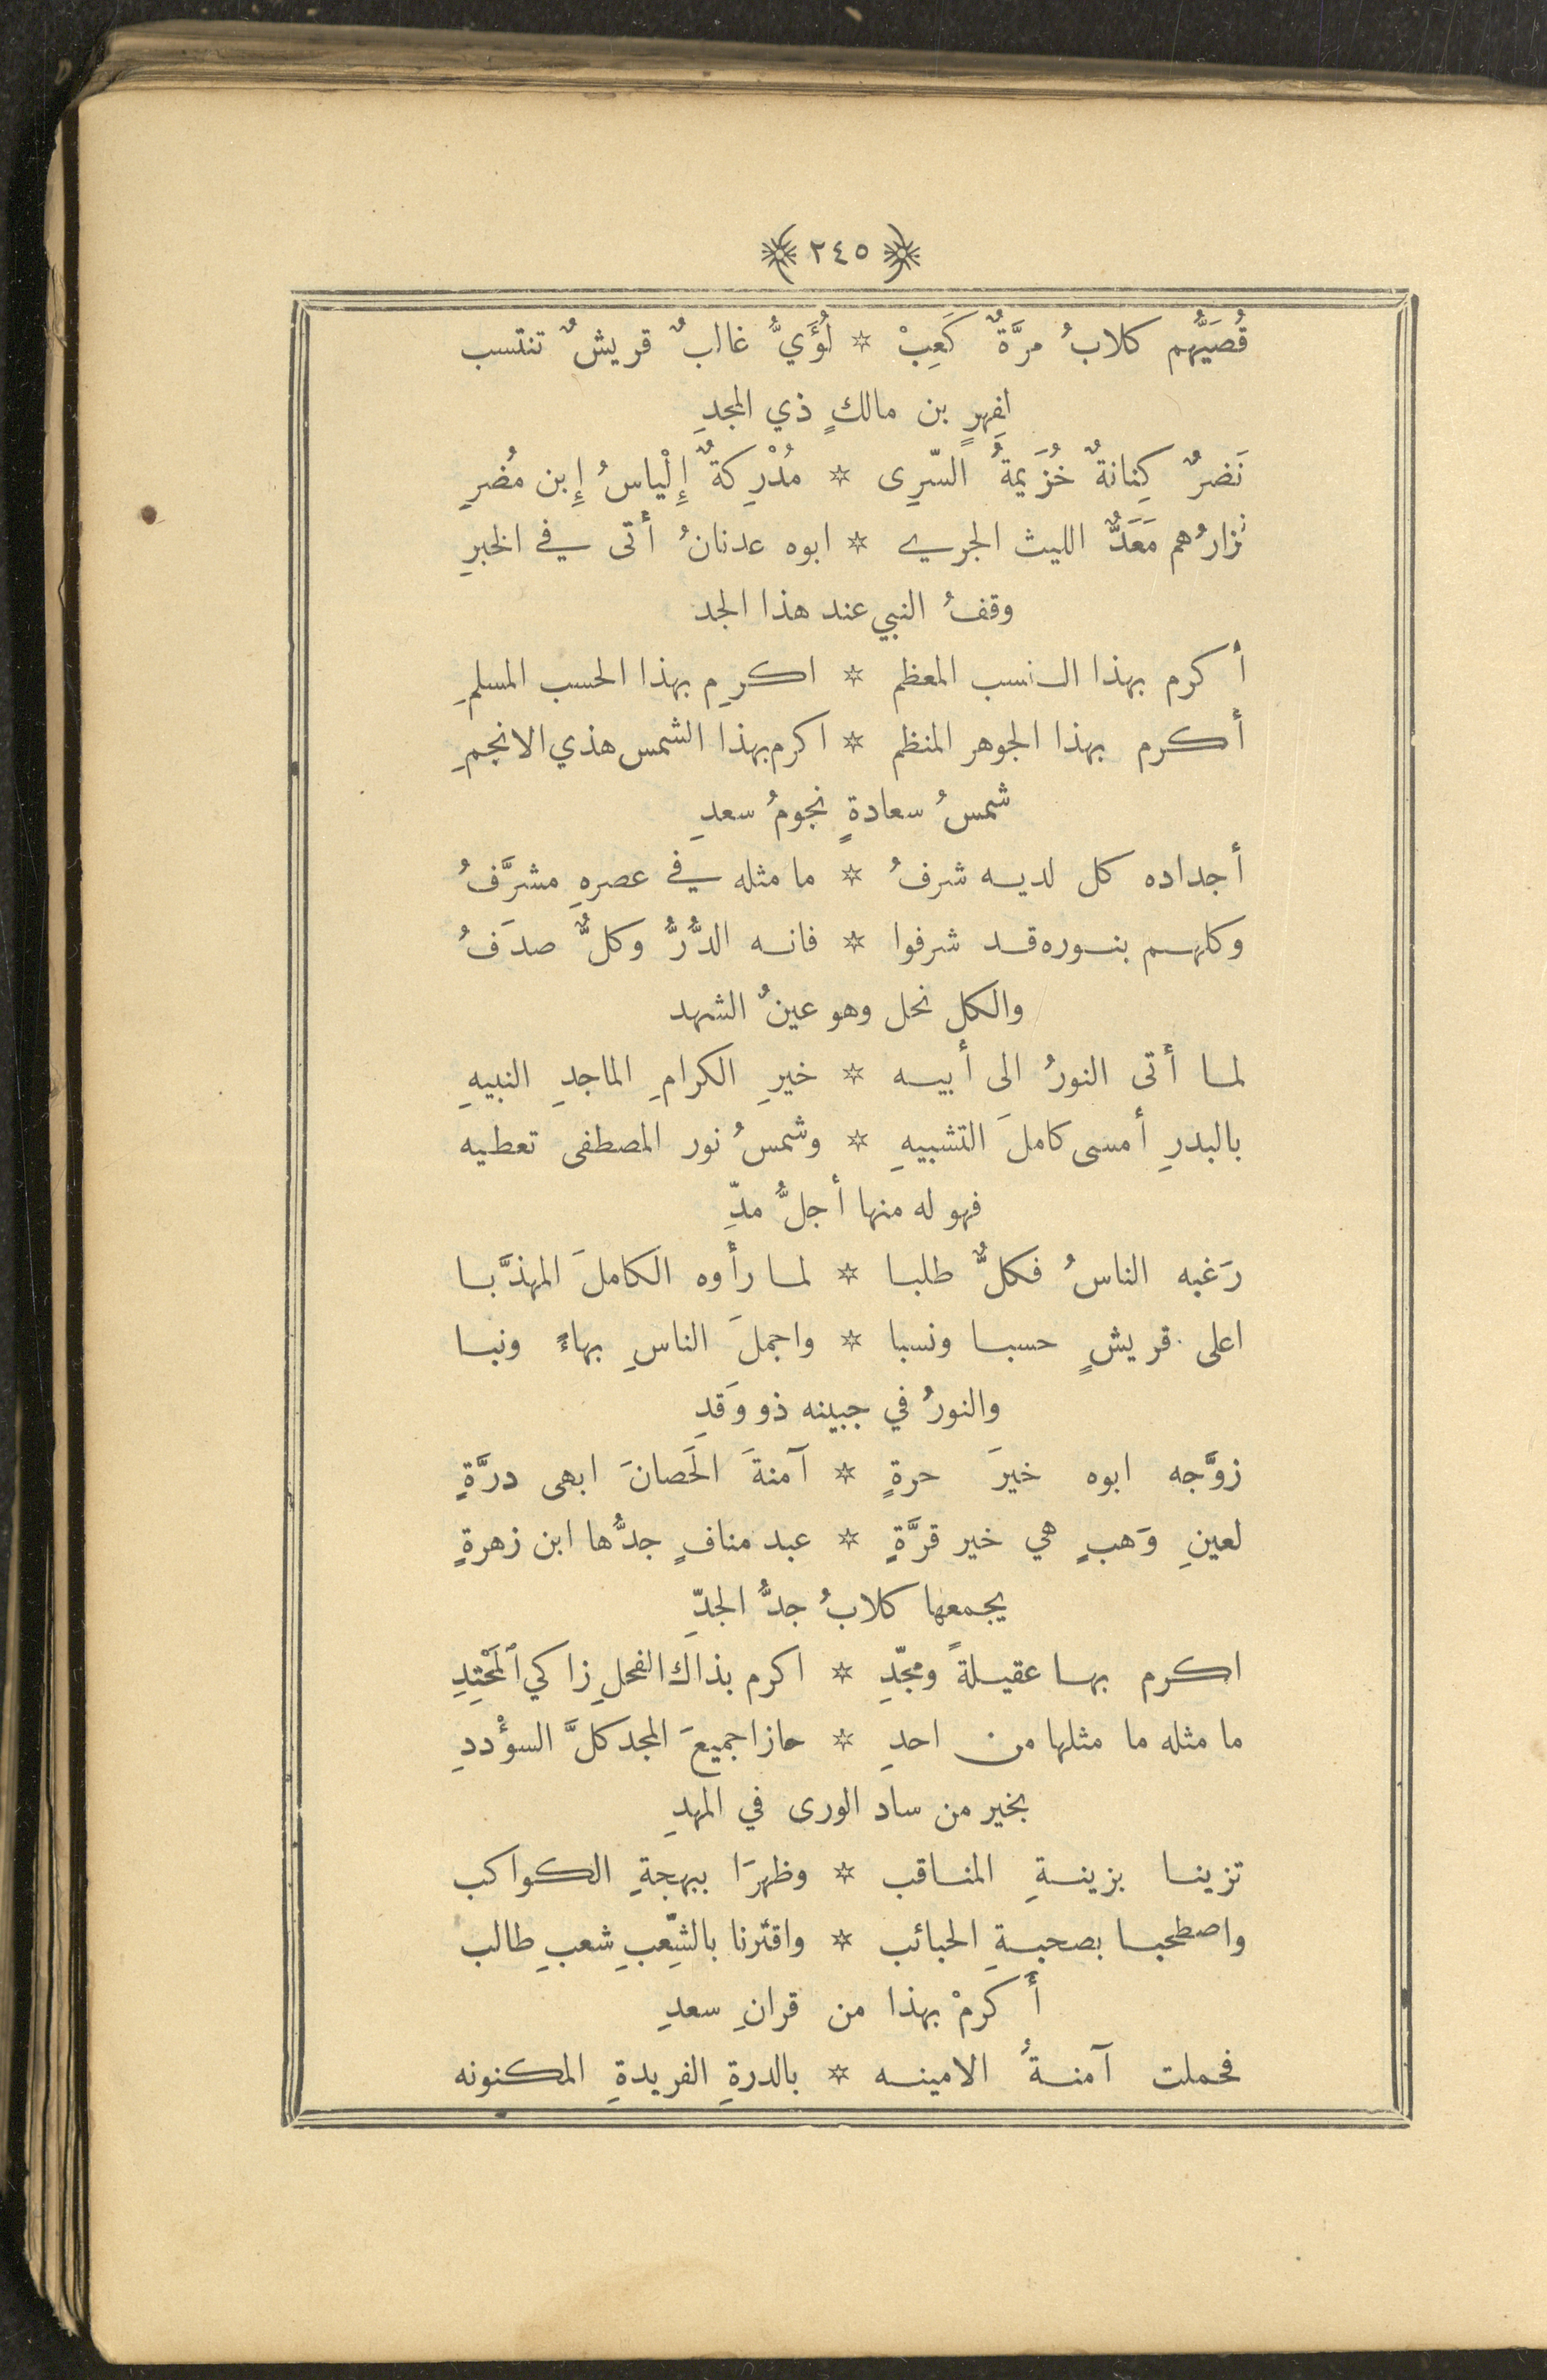 ﴿ ٢٤٥ ﴾
قُصَيُّهم كلابُ مرَّةٌ كَعِبْ * لُؤَيُّ غالبٌ قريشٌ تنتسب
لِفِهرٍ بن مالكٍ ذي المجدِ
نَضرٌ كِنانةٌ خُزَيمةُ السّرِى * مُدْرِكةٌ إِلْياسُ إِبن مُضرِ
نزارُهم مَعَدٌّ الليث الجري * ابوه عدنانُ أتى في الخبرِ
وقفُ النبي عند هذا الجد
أكرم بهذا النسب المعظم * اكرِم بهذا الحسب المسلمِ
أكرم بهذا الجوهر المنظم * اكرم بهذا الشمس هذي الانجمِ
شمسُ سعادةٍ نجومُ سعدِ
أجداده كل لديه شرفُ * ما مثله في عصرهِ مشرَّفُ
وكلهم بنوره قد شرفوا * فانه الدُّرُّ وكلٌّ صدَفُ
والكل نحل وهو عينُ الشهد
لما أتى النورُ الى أبيه * خيرِ الكرامِ الماجدِ النبيهِ
بالبدرِ أمسى كاملَ التشبيهِ * وشمسُ نور المصطفى تعطيه
فهو له منها أجلُّ مدِّ
رَغبه الناسُ فكلٌّ طلبا * لما رأوه الكاملَ المهذَّبا
اعلى قريشٍ حسبا ونسبا * واجملَ الناسِ بهاءً ونبا
والنورُ في جبينه ذو وَقدِ
زوَّجه ابوه خيرَ حرةٍ * آمنةَ الحَصانَ ابهى درَّةٍ
لعينِ وَهبٍ هي خير قرَّةٍ * عبد منافٍ جدُّها ابن زهرةٍ
يجمعها كلابُ جدُّ الجدِّ
اكرم بها عقيلةً ومجّدِ * اكرم بذاك الفحلِ زاكي ٱلمَحْتِدِ
ما مثله ما مثلها من احدِ * حازا جميعَ المجد كلَّ السؤْددِ
بخير من ساد الورى في المهدِ
تزينا بزينةِ المناقب * وظهرَا ببهجةِ الكواكب
واصطحبا بصحبةِ الحبائب * واقترنا بالشِّعبِ شعبِ طالب
أكرمْ بهذا من قرانِ سعدِ
فحملت آمنةُ الامينه * بالدرةِ الفريدةِ المكنونه